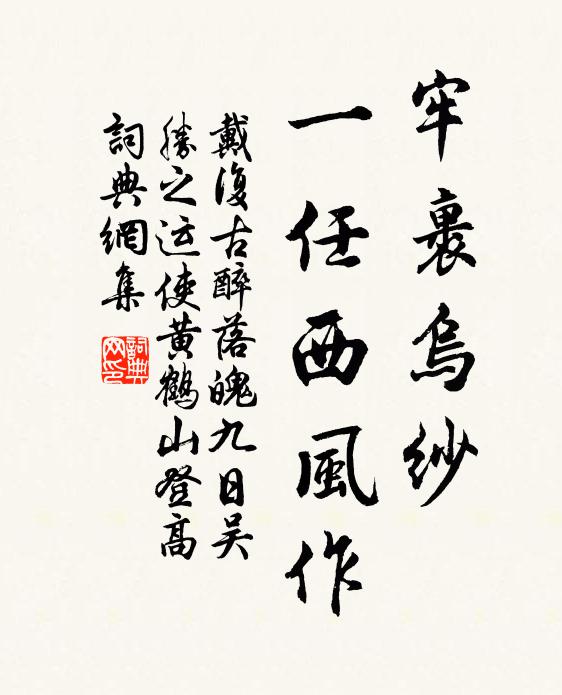 牢裹烏紗
一任西風作
戴復古醉落魄九日吴
勝之运使黄鶴山登高
詞典網集
詞典
网印